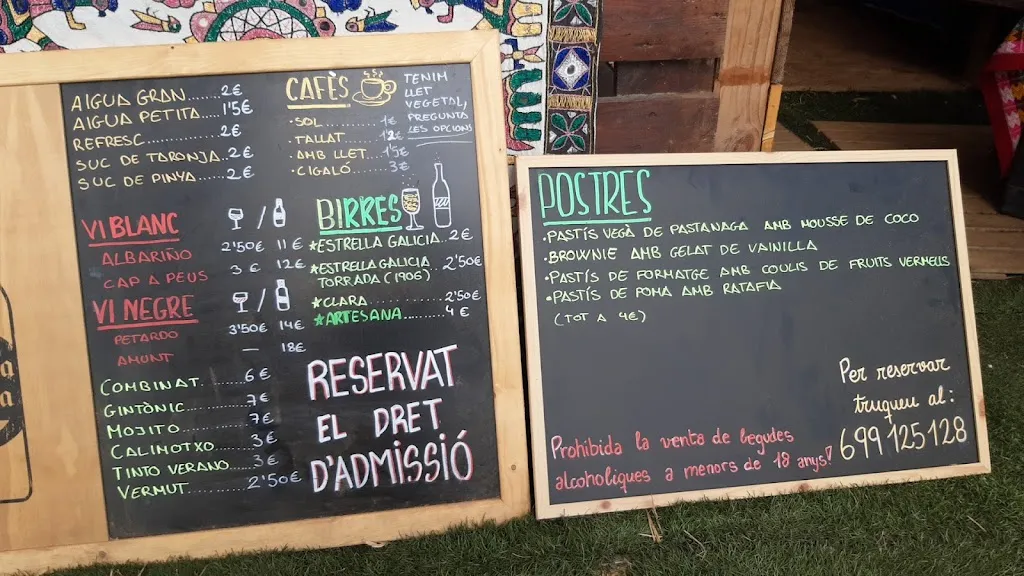 AIGUA GRAN......2€
AIGUA PETITA.....1'5€
REFRESC..........2€
SUC DE TARONJA..2€
SUC DE PINYA.....2€
VI BLANC /
ALBARIÑO 2'50€ 11€
CAP A PEUS 3€ 12€
VI NEGRE /
PETARDO 3'50€ 14€
AMUNT — 18€
COMBINAT........6€
GINTÒNIC..........7€
MOJITO............7€
CALIMOTXO.......3€
TINTO VERANO....3€
VERMUT..........2'50€
CAFÈS
·SOL............1€
·TALLAT.........1'2€
·AMB LLET....1'5€
·CIGALÓ........3€
TENIM
LLET
VEGETAL,
PREGUNTA
LES OPCIONS
BIRRES
★ESTRELLA GALICIA..2€
★ESTRELLA GALICIA..2'50€
TORRADA (1906)
★CLARA..........2'50€
★ARTESANA.......4€
RESERVAT
EL DRET
D'ADMISSIÓ
POSTRES
·PASTÍS VEGÀ DE PASTANAGA AMB MOUSSE DE COCO
·BROWNIE AMB GELAT DE VAINILLA
·PASTÍS DE FORMATGE AMB COULIS DE FRUITS VERMELLS
·PASTÍS DE POMA AMB RATAFIA
(TOT A 4€)
Per reservar
truqueu al:
699 125 128
Prohibida la venta de begudes
alcoholiques a menors de 18 anys!